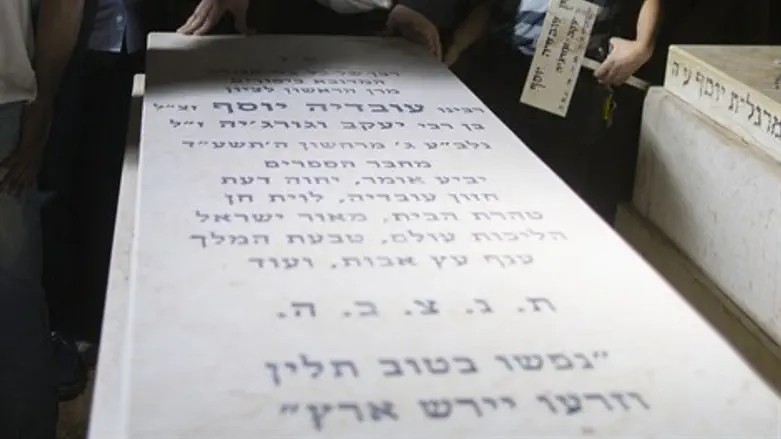 רבן של כל
המדוכא ביסורים
מרן הראשון לציון
רבינו עובדיה יוסף זצ"ל
בן רבי יעקב וגורג'יה ז"ל
נלב"ע ג' מרחשון ה'תשע"ד
מחבר הספרים
יביע אומר, יחוה דעת
חזון עובדיה, לוית חן
טהרת הבית, מאור ישראל
הליכות עולם, טבעת המלך
ענף עץ אבות, ועוד
ת. נ. צ. ב. ה.
"נפשו בטוב תלין
וזרעו יירש ארץ"
עובדיה יוסף
מרגלית יוסף ע"ה